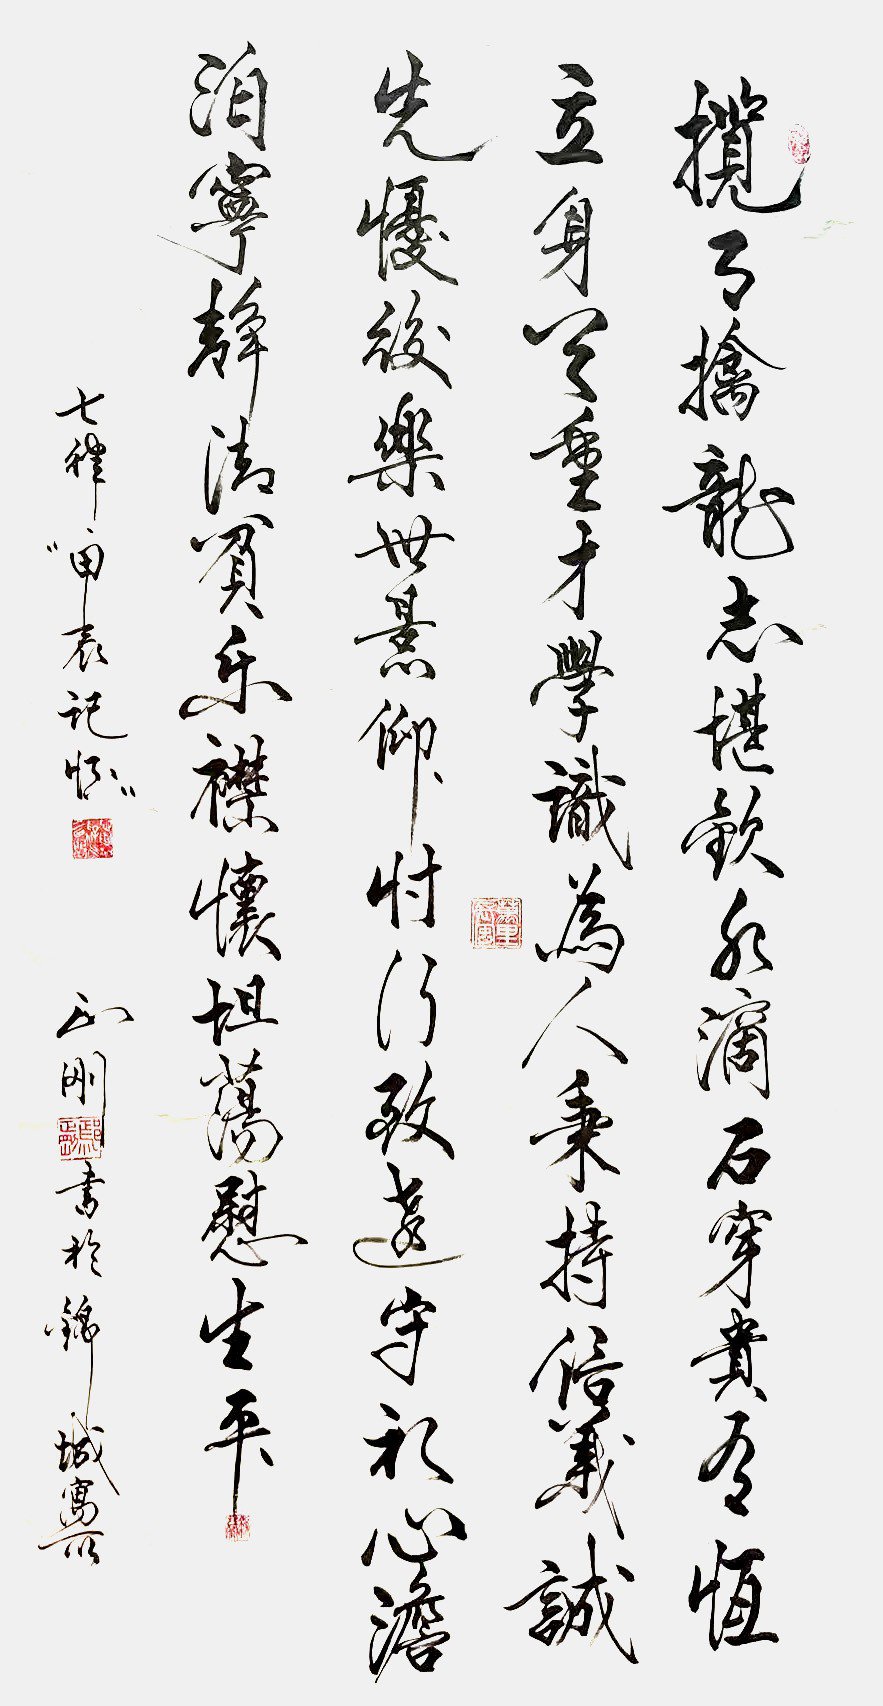 攬月擒龍志堪欽水滴石穿貴有恆
立身首重才學識為人秉持信義誠
先懮後樂世景仰忖行致遠守初心澹
泊寧靜清貧乐襟懷坦蕩慰生平
七律“甲辰記懷” 正剛書於錦城寓所